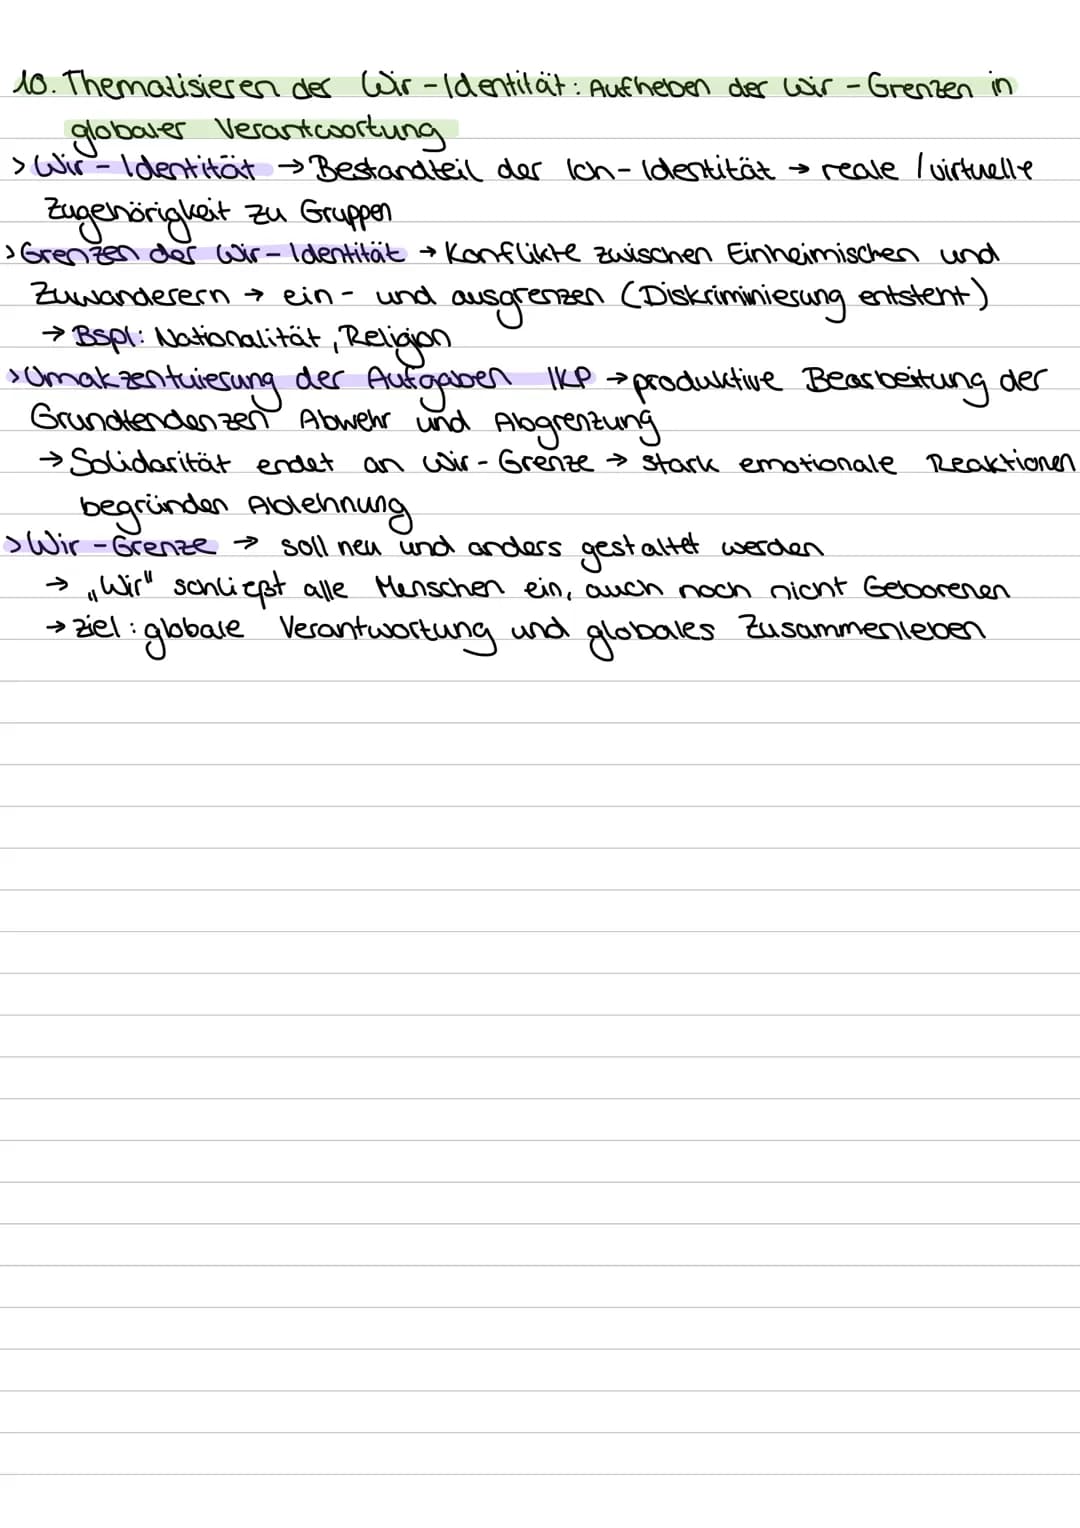 10. Thematisieren der Wir-Identität: Aufheben der Wir-Grenzen in
globaler Verantwortung
> Wir-Identität → Bestandteil der Ich-Identität → reale / virtuelle
Zugehörigkeit zu Gruppen
> Grenzen der Wir-Identität → Konflikte zwischen Einheimischen und
Zuwanderern → ein- und ausgrenzen (Diskriminierung entsteht)
→ Bspl: Nationalität, Religion
> Umakzentuierung der Aufgaben IKP → produktive Bearbeitung der
Grundtendenzen Abwehr und Abgrenzung
→ Solidarität endet an Wir-Grenze → stark emotionale Reaktionen
begründen Ablehnung
> Wir-Grenze → soll neu und anders gestaltet werden
→ „Wir" schließt alle Menschen ein, auch noch nicht Geborenen
→ ziel: globale Verantwortung und globales Zusammenleben